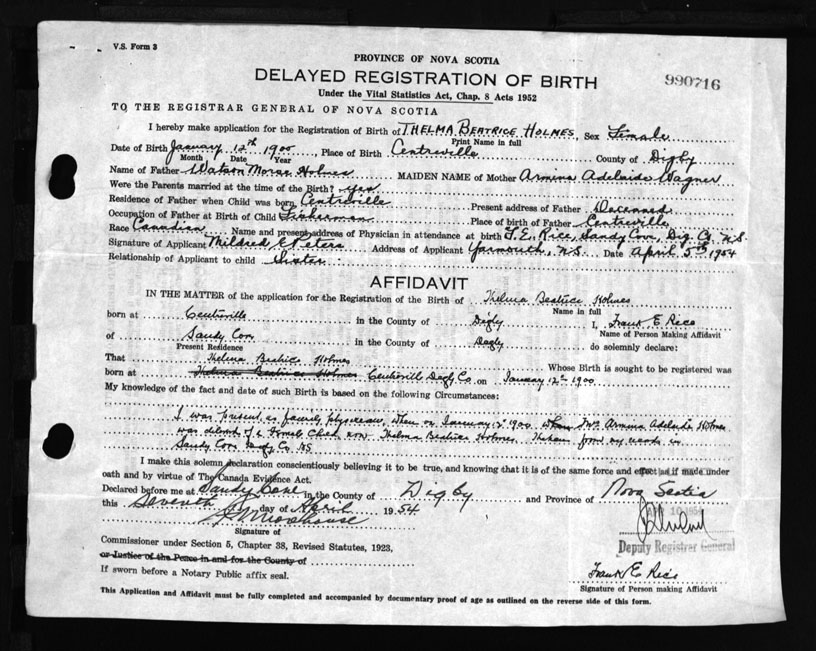 V.S. Form 3
PROVINCE OF NOVA SCOTIA
DELAYED REGISTRATION OF BIRTH
990716
Under the Vital Statistics Act, Chap. 8 Acts 1952
TO THE REGISTRAR GENERAL OF NOVA SCOTIA
I hereby make application for the Registration of Birth of THELMA BEATRICE HOLMES, Sex Female
Print Name in full
Date of Birth January 12th 1900, Place of Birth Centreville County of Digby
Month Date Year
Name of Father Watson Holmes MAIDEN NAME of Mother Armina Adelaide Wagner
Were the Parents married at the time of the Birth? yes
Residence of Father when Child was born Centreville Present address of Father Deceased
Occupation of Father at Birth of Child Fisherman Place of birth of Father Centreville
Race Canadian Name and present address of Physician in attendance at birth F.E. Rice, Sandy Cove, Dig. Co. N.S.
Signature of Applicant Mildred E Peters Address of Applicant Yarmouth, N.S. Date April 5th 1954
Relationship of Applicant to child Sister
AFFIDAVIT
IN THE MATTER of the application for the Registration of the Birth of Thelma Beatrice Holmes
Name in full
born at Centreville in the County of Digby I, Frank E Rice
Name of Person Making Affidavit
of Sandy Cove in the County of Digby do solemnly declare:
Present Residence
That Thelma Beatrice Holmes Whose Birth is sought to be registered was
born at Thelma Beatrice Holmes Centrevill Digby Co. on January 12th 1900
My knowledge of the fact and date of such Birth is based on the following Circumstances:
I was present as family physician, when on January 12 1900 Mrs Armina Adelaide Holmes
was delivered of a Female Child now Thelma Beatrice Holmes. from my records in
Sandy Cove Digby Co NS
I make this solemn declaration conscientiously believing it to be true, and knowing that it is of the same force and effect as if made under
oath and by virtue of The Canada Evidence Act.
Declared before me at Sandy Cove in the County of Digby and Province of Nova Scotia
this Seventh day of April 1954
APR 10 1954
Signature of
Deputy Registrar General
Commissioner under Section 5, Chapter 38, Revised Statutes, 1923,
or Justice of the Peace in and for the County of
If sworn before a Notary Public affix seal.
Frank E Rice
Signature of Person making Affidavit
This Application and Affidavit must be fully completed and accompanied by documentary proof of age as outlined on the reverse side of this form.